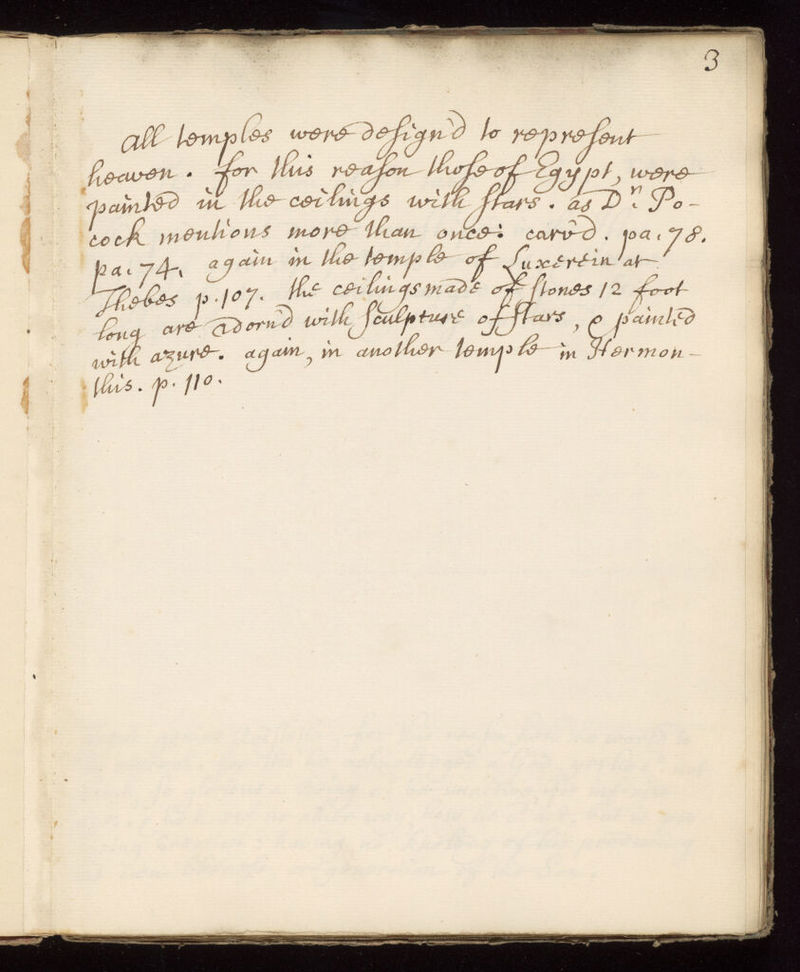 3
All temples were design'd to represent
heaven. for this reason those of Egypt, were
painted in the ceilings with stars. as Dr. Po-
cock mentions more than once: carv'd. pa. 78.
pa. 74. again in the temple of Luxerein at
Thebes p. 107. the ceilings made of stones 12 foot
long are adorn'd with sculpture of stars, & painted
with azure. again, in another temple in Hermon-
this. p. 110.